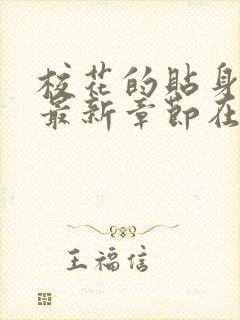 校花的貼身
最新章節在
王福信